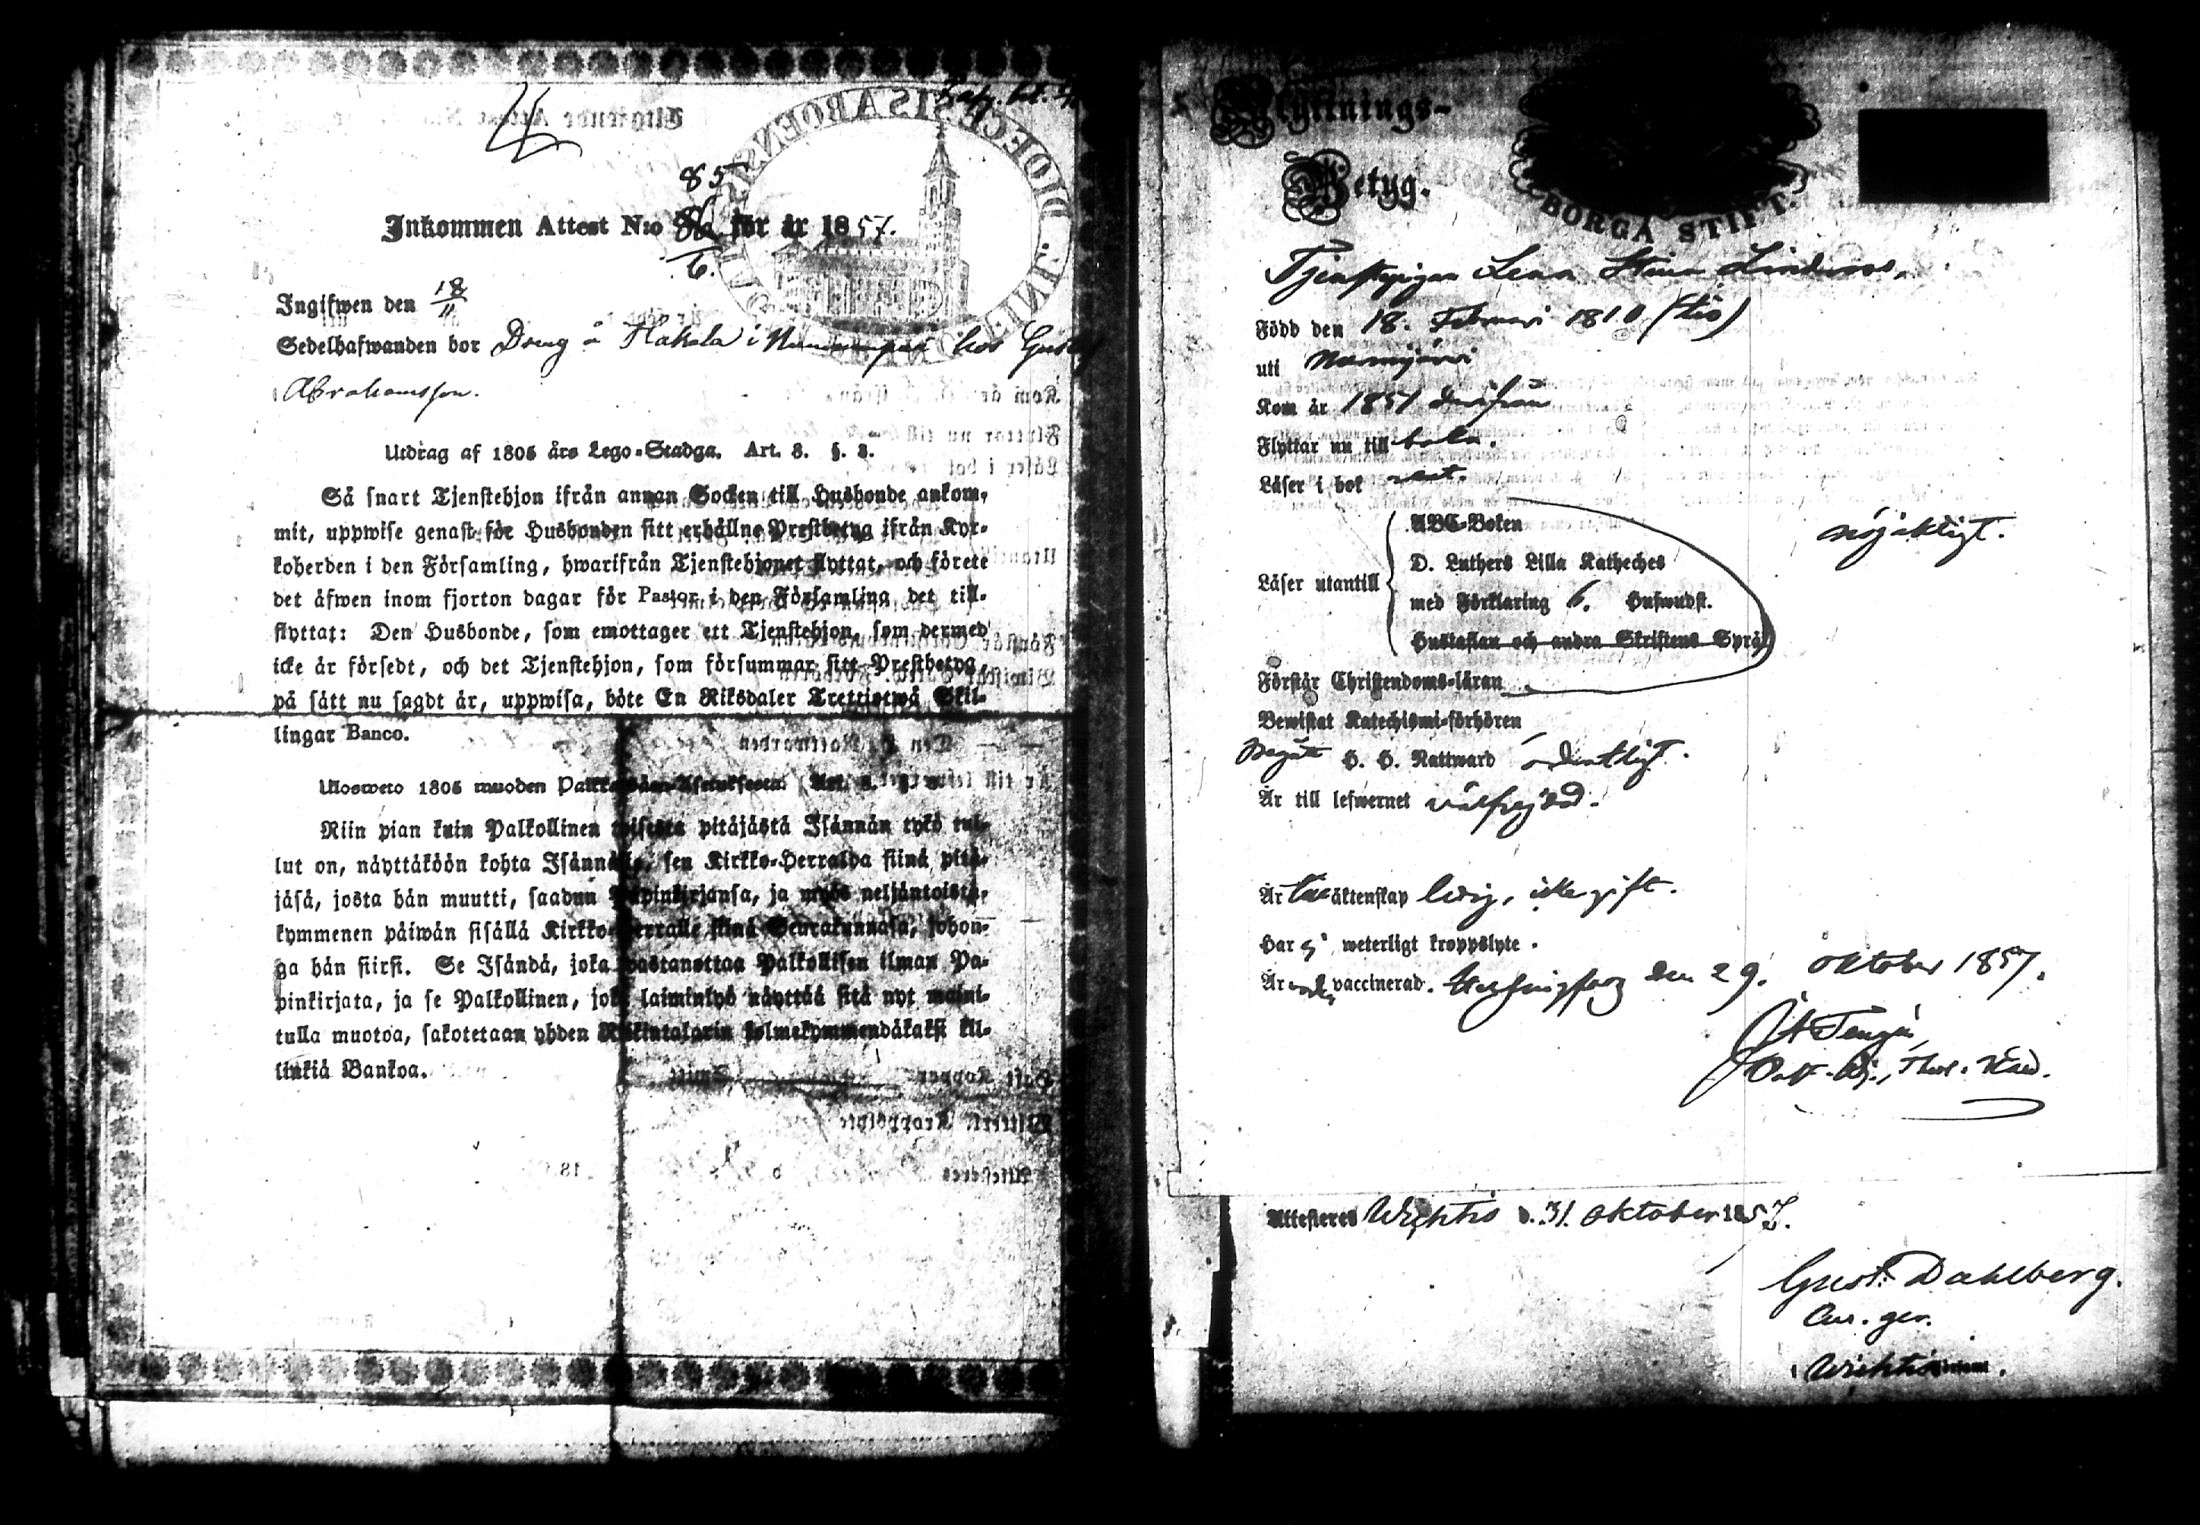 85
Inkommen Attest N:o 86 för år 1857.
6.
Ingifwen den 18/11
Sedelhafwanden bor Dreng å Hakala i Nummenpää hos Gustaf
Abrahamsson.
Utdrag af 1805 års Lego-Stadga. Art. 3. §. 3.
Så snart Tjenstehjon ifrån annan Socken till Husbonde ankom-
mit, uppwise genast för Husbonden sitt erhållne Prestbetyg ifrån Kyr-
koherden i den Församling, hwarifrån Tjenstehjonet flyttat, och förete
det äfwen inom fjorton dagar för Pastor i den Församling det till-
flyttat: Den Husbonde, som emottager ett Tjenstehjon, som dermed
icke är försedt, och det Tjenstehjon, som försummar sitt Prestbetyg,
på sätt nu sagdt är, uppwisa, böte En Riksdaler Trettiotwå Skil-
lingar Banco.
Ulosweto 1805 wuoden Palkka-Wäen Asetuksesta. Art. 3. §. 3.
Niin pian kuin Palkollinen toisesta pitäjästä Isännän tykö tul-
lut on, näyttäköön kohta Isännälle, sen Kirkko-Herralda siinä pitä-
jäsä, josta hän muutti, saadun Papinkirjansa, ja myös neljäntoista-
kymmenen päiwän sisällä Kirkko-Herralle siinä Seurakunnasa, johon-
ga hän siirsi. Se Isändä, joka wastanottaa Palkollisen ilman Pa-
pinkirjata, ja se Palkollinen, joka laiminlyö näyttää sitä nyt maini-
tulla muotoa, sakotetaan yhden Riikintalarin kolmekymmendäkaksi kil-
linkiä Bankoa.
Flyttnings-
Betyg.
BORGÅ STIFT.
Tjenstepigan Lena Stina Lindroos,
Född den 18. Februari 1810 (tio)
uti Nurmijärvi
Kom år 1851 derifrån
Flyttar nu till
Läser i bok
ABC-Boken
D. Luthers Lilla Katheches
nöjaktigt.
Läser utantill
med Förklaring 6. Hufwudst.
Hustaflan och andra Skriftens Språk
Förstår Christendoms-läran
Bewistat Katechismi-förhören
Begått H. H. Nattward ordentligt.
Är till lefwernet välfrejdad.
Är till äktenskap ledig, icke gift.
Har ej weterligt kroppslyte.
Är vaccinerad. Helsingfors den 29. Oktober 1857.
Attesteres Wichtis d. 31 Oktober 1857.
Gust: Dahlberg.
Wichtis